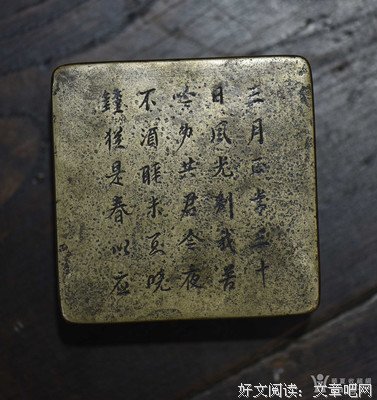 三月正當三十
日風光别我苦
吟身共君今夜
不須睡未曉
鐘猶是春以应
好文阅读：文章吧网